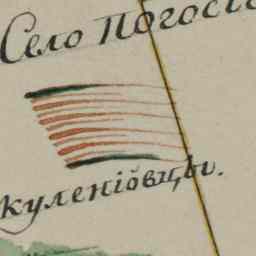 Село Погост
куленіовцы.